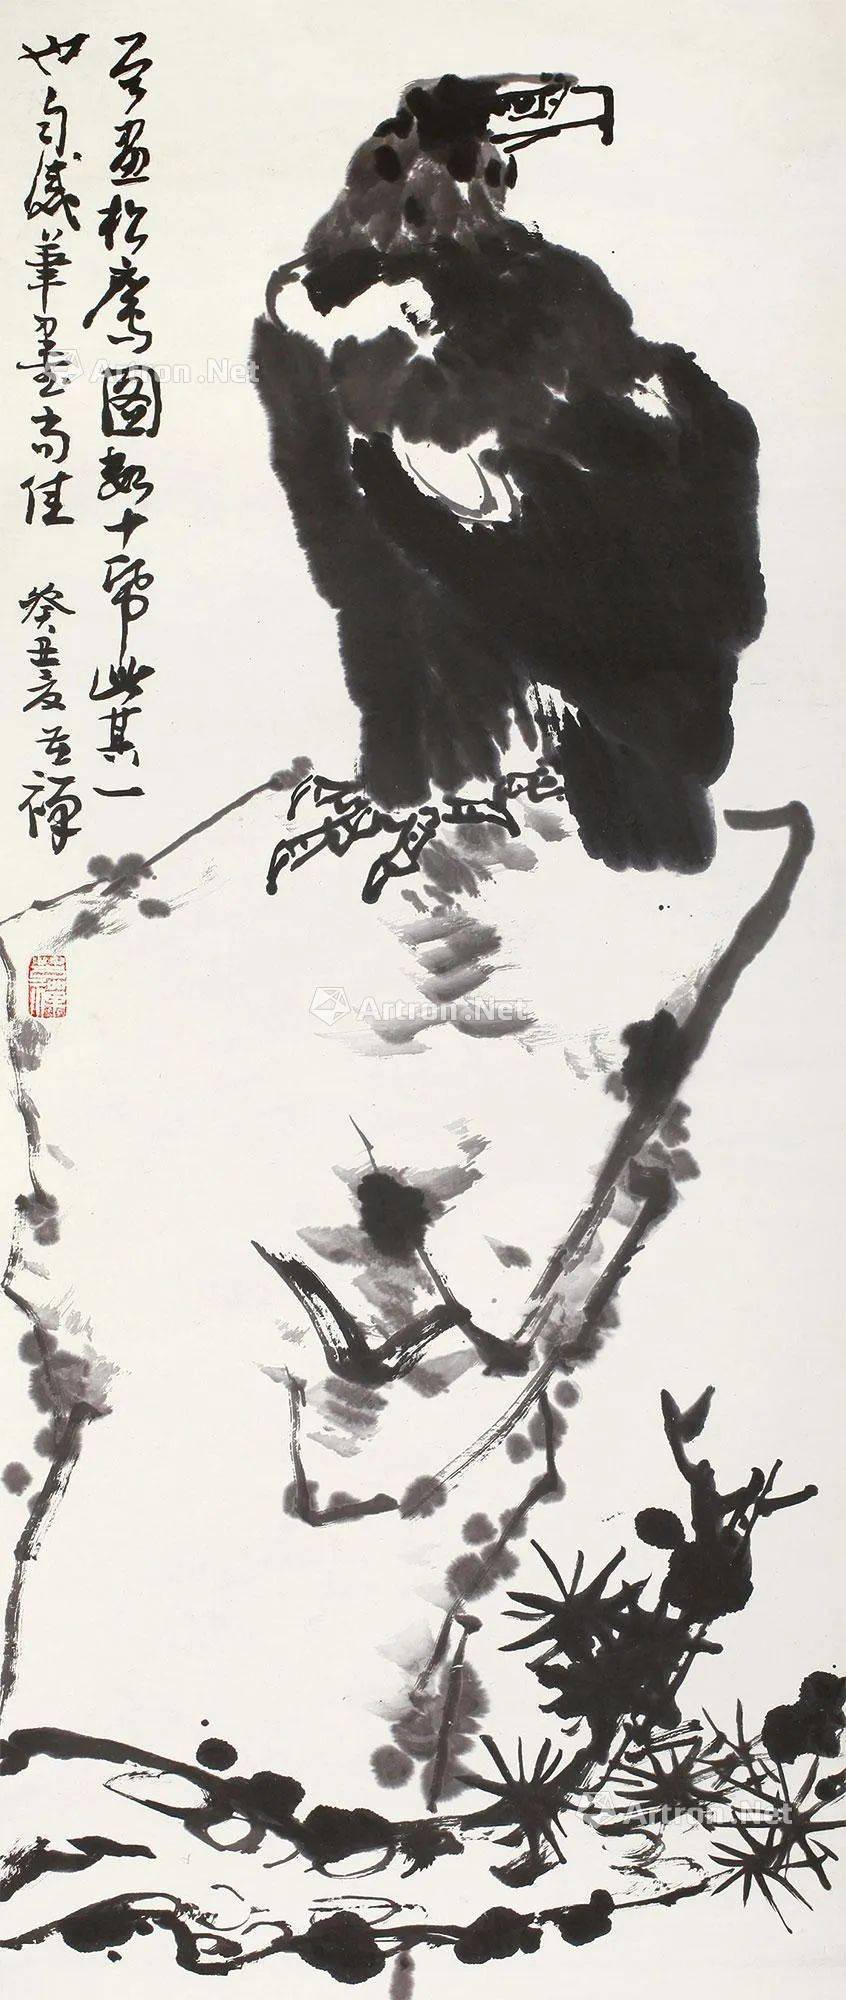 余画松鹰图数十幅此其一
也自感笔墨尚佳 癸丑夏苦禅
苦禅
Artron.Net
Artron.Net
Artron.Net